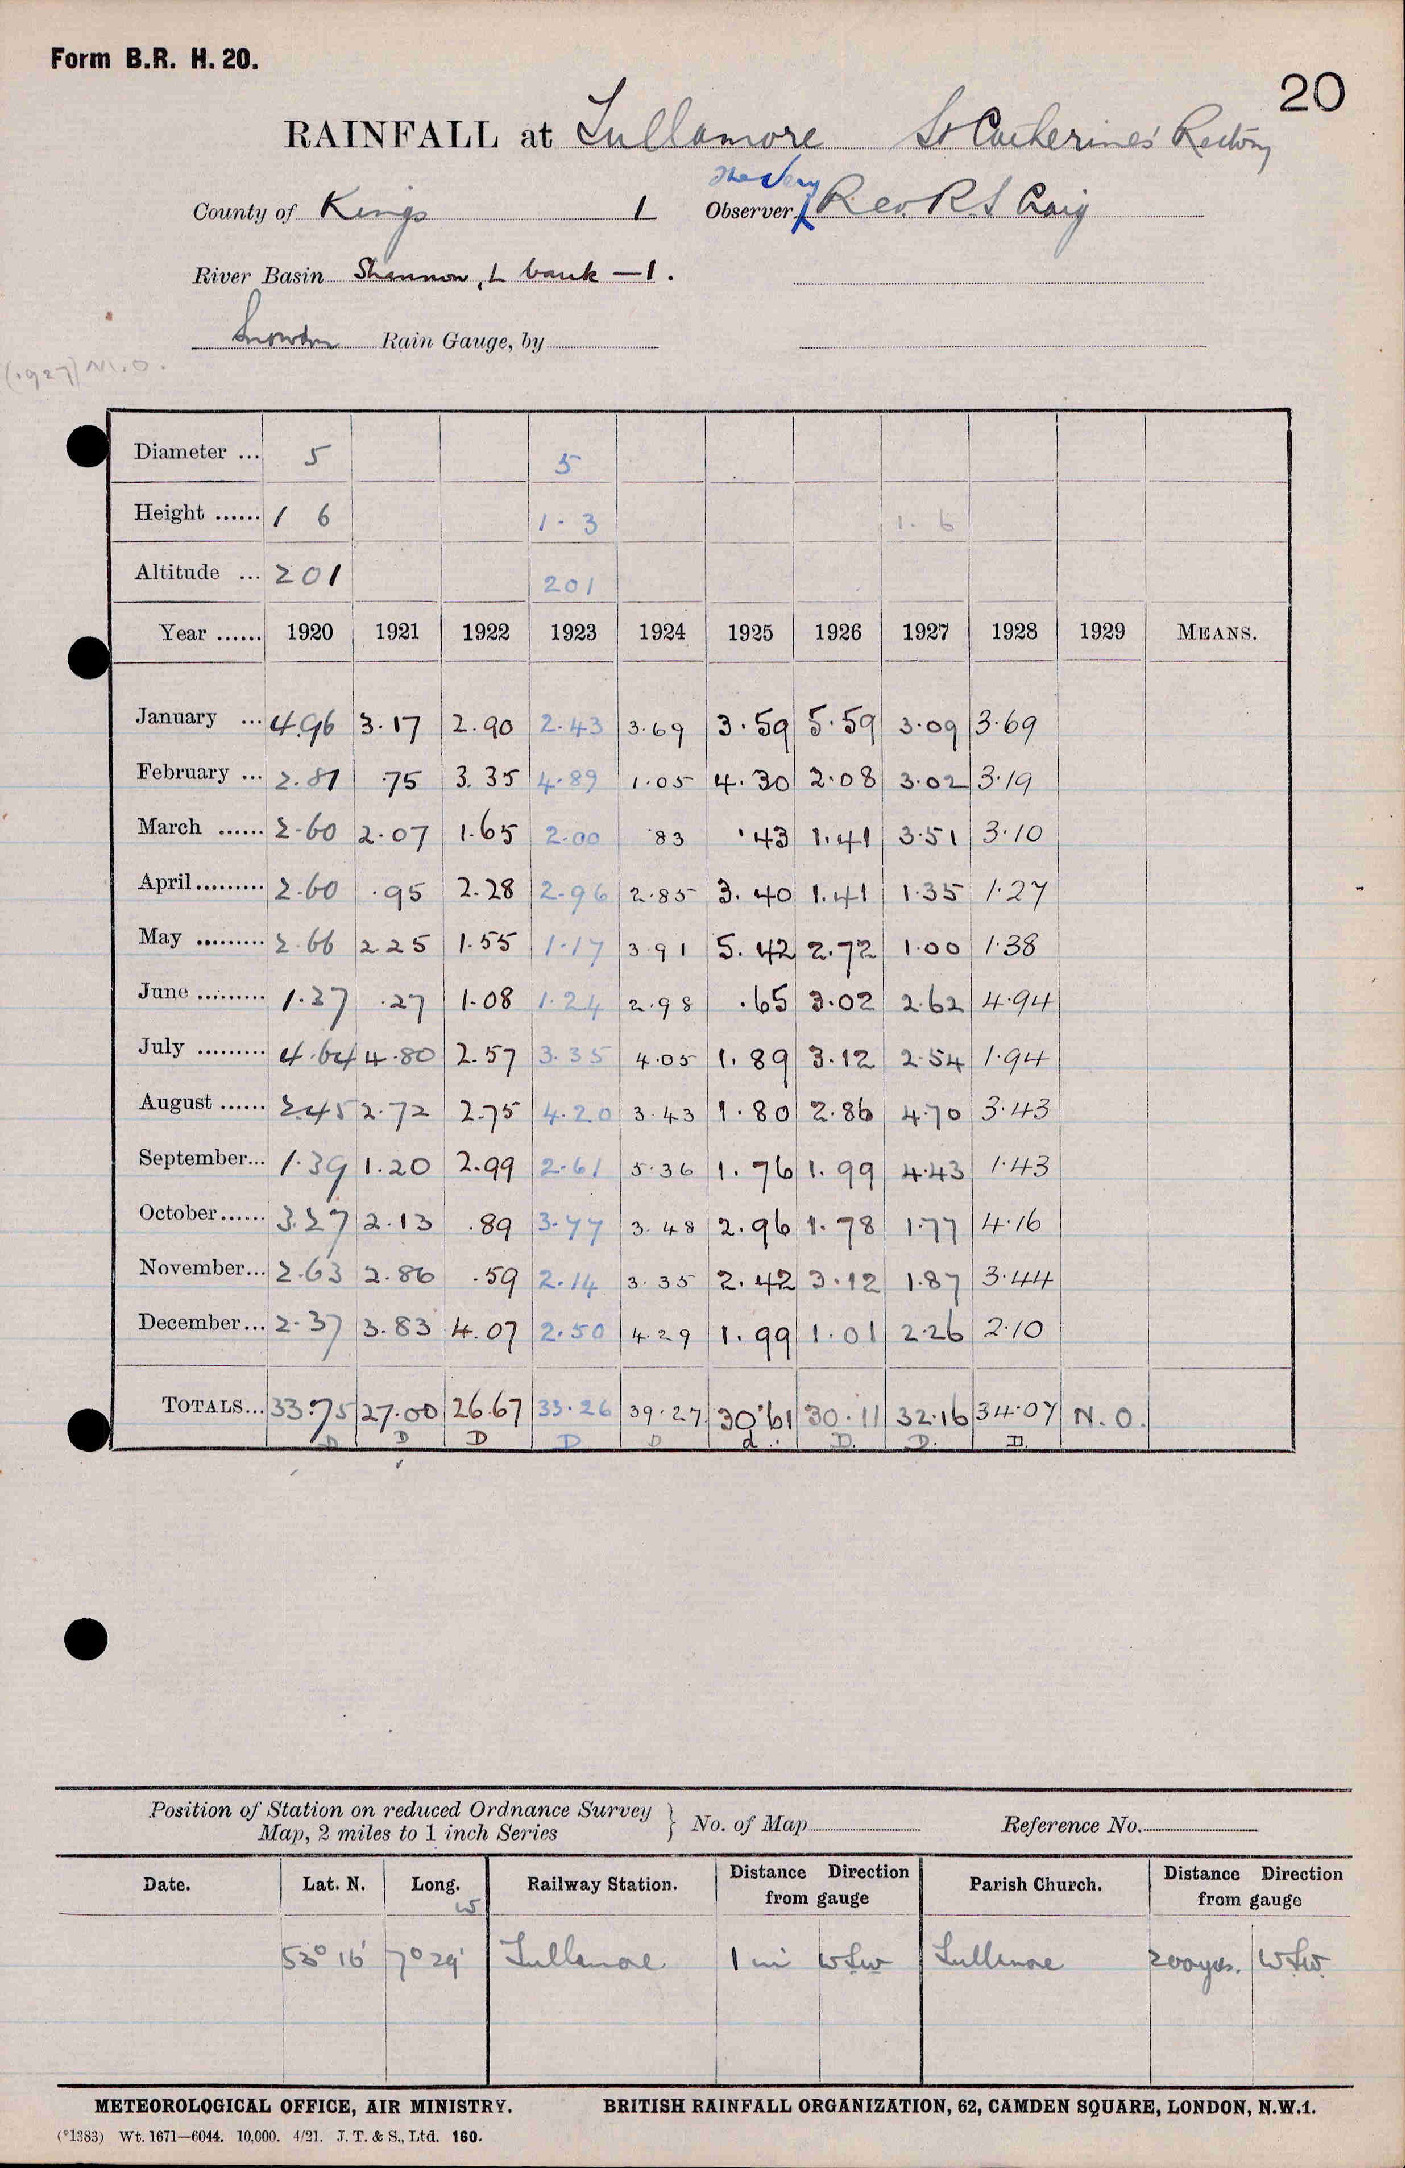 Form B.R. H. 20.
20
RAINFALL at Tullamore St Catherine's Rectory
The Very
County of Kings 1 Observer Rev. R. S Craig
River Basin Shannon, L bank — 1.
Snowdon Rain Gauge, by
(1927) M.O.
Diameter ... 5 5
Height ...... 1 6 1.3 1.6
Altitude ... 201 201
Year ...... 1920 1921 1922 1923 1924 1925 1926 1927 1928 1929 MEANS.
January ... 4.96 3.17 2.90 2.43 3.69 3.59 5.59 3.09 3.69
February ... 2.81 75 3.35 4.89 1.05 4.30 2.08 3.02 3.19
March ...... 2.60 2.07 1.65 2.00 .83 .43 1.41 3.51 3.10
April ......... 2.60 .95 2.28 2.96 2.85 3.40 1.41 1.35 1.27
May ......... 2.66 2.25 1.55 1.17 3.91 5.42 2.72 1.00 1.38
June ......... 1.37 .27 1.08 1.24 2.98 .65 3.02 2.62 4.94
July ......... 4.64 4.80 2.57 3.35 4.05 1.89 3.12 2.54 1.94
August ...... 2.45 2.72 2.75 4.20 3.43 1.80 2.86 4.70 3.43
September... 1.39 1.20 2.99 2.61 5.36 1.76 1.99 4.43 1.43
October...... 3.27 2.13 .89 3.77 3.48 2.96 1.78 1.77 4.16
November... 2.63 2.86 .59 2.14 3.35 2.42 3.12 1.87 3.44
December... 2.37 3.83 4.07 2.50 4.29 1.99 1.01 2.26 2.10
TOTALS... 33.75 27.00 26.67 33.26 39.27 30.61 30.11 32.16 34.07 N.O.
D D D D D d D. D. D.
Position of Station on reduced Ordnance Survey
Map, 2 miles to 1 inch Series } No. of Map Reference No.
Date. Lat. N. Long. W Railway Station. Distance Direction from gauge Parish Church. Distance Direction from gauge
53° 16' 7° 29' Tullamore 1 mi WSW Tullamore 200 yds. WSW.
METEOROLOGICAL OFFICE, AIR MINISTRY. BRITISH RAINFALL ORGANIZATION, 62, CAMDEN SQUARE, LONDON, N.W.1.
(*1383) Wt. 1671—6044. 10,000. 4/21. J. T. & S., Ltd. 160.